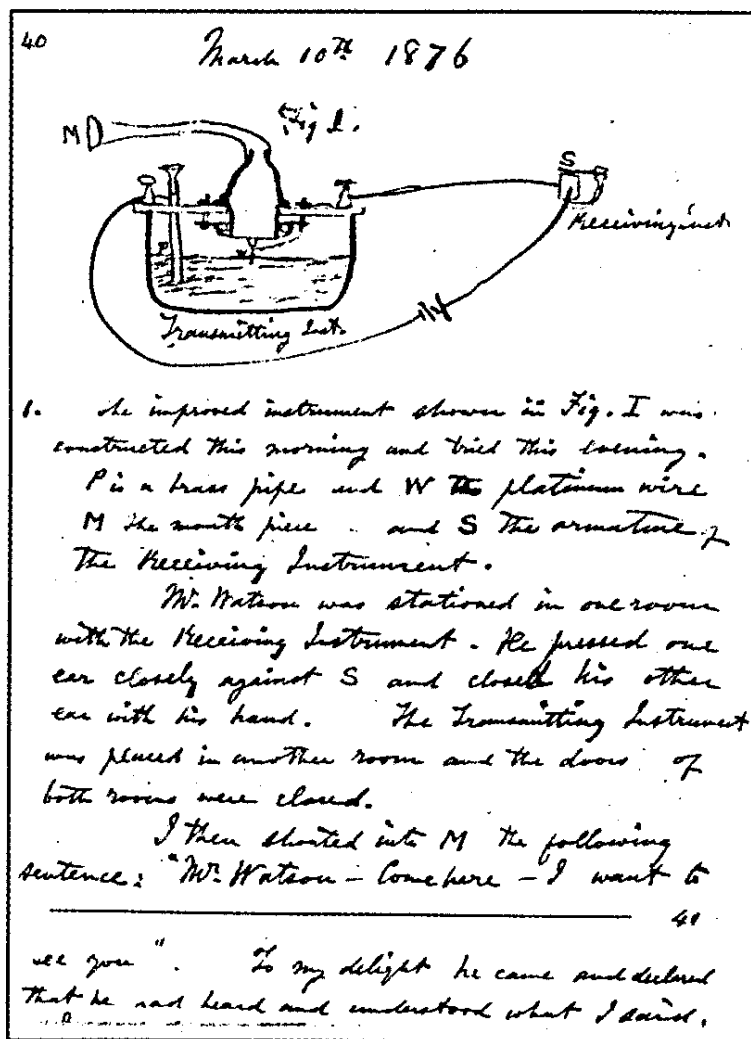 40
March 10th 1876
Fig 1.
M
S
Receiving inst.
P
W
Transmitting Inst.
1. The improved instrument shown in Fig. I was
constructed this morning and tried this evening.
P is a brass pipe and W the platinum wire
M the mouth piece and S the armature of
the Receiving Instrument.
Mr. Watson was stationed in one room
with the Receiving Instrument. He pressed one
ear closely against S and closed his other
ear with his hand. The Transmitting Instrument
was placed in another room and the doors of
both rooms were closed.
I then shouted into M the following
sentence: "Mr. Watson – Come here – I want to
41
see you". To my delight he came and declared
that he had heard and understood what I said.